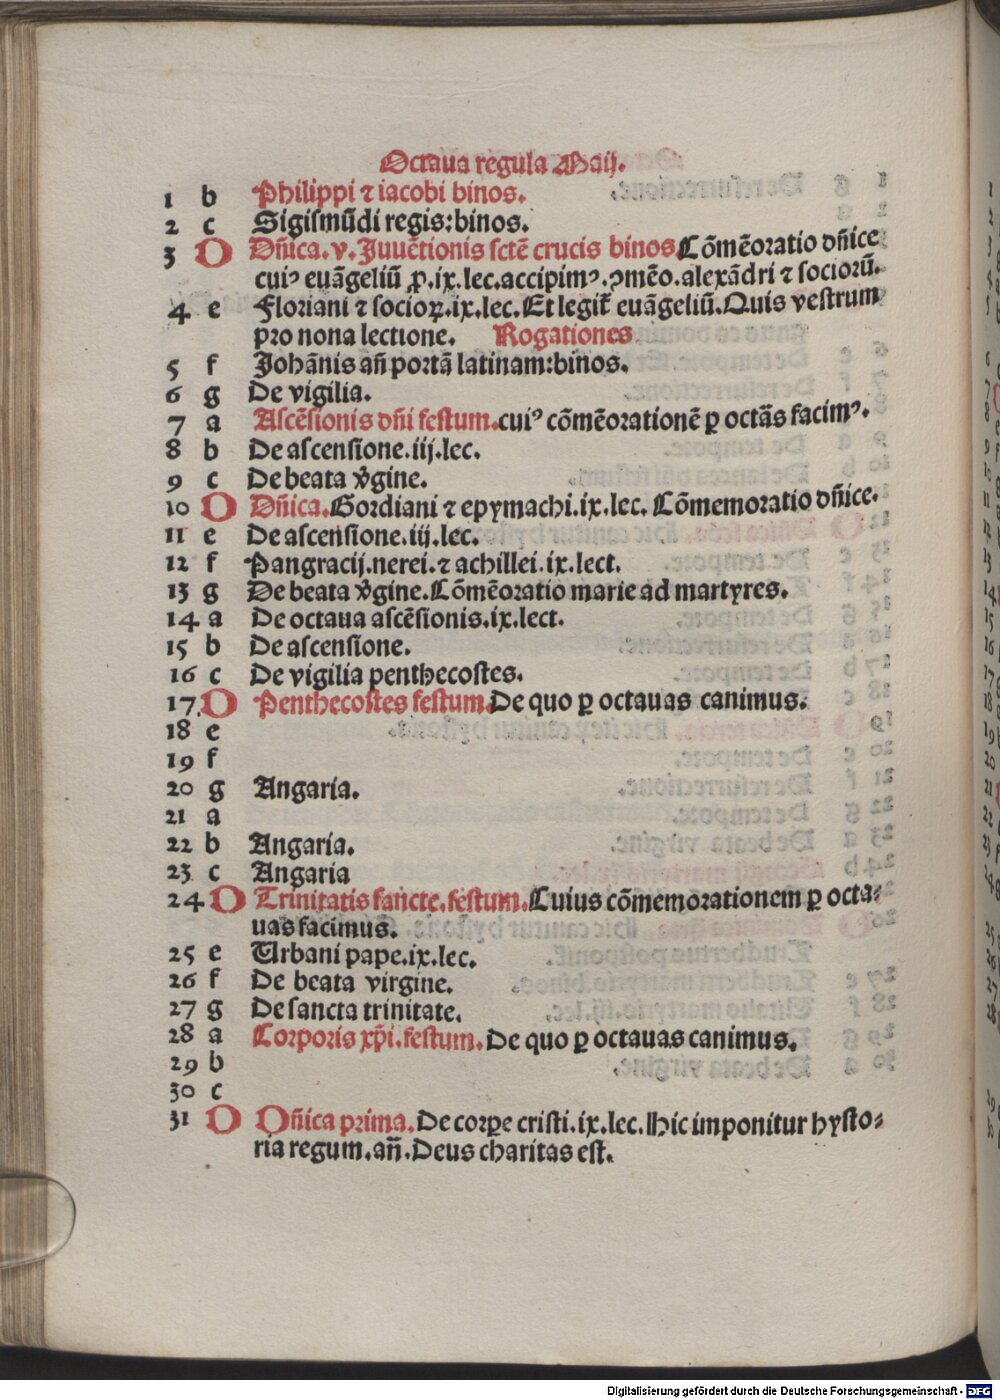 Octaua regula Maij.
1 b Philippi ⁊ iacobi binos.
2 c Sigismūdi regis: binos.
3 D Dn̄ica. v. Inuētionis sctē crucis binos Cōmēoratio dn̄ice
cuiꝰ euāgeliū ꝓ. ix. lec. accipimꝰ. ꝯmēo. alexādri ⁊ socioꝛū.
4 e Floꝛiani ⁊ socioꝝ. ix. lec. Et legit᷑ euāgeliū. Quis vestrum
pro nona lectione. Rogationes
5 f Johānis an̄ poꝛtā latinam: binos.
6 g De vigilia.
7 a Ascēsionis dn̄i festum. cuiꝰ cōmēoꝛationē ꝑ octāƨ facimꝰ.
8 b De ascensione. iij. lec.
9 c De beata v̓gine.
10 D Dn̄ica. Goꝛdiani ⁊ epymachi. ix. lec. Cōmemoꝛatio dn̄ice.
11 e De ascensione. iij. lec.
12 f Pangracij. nerei. ⁊ achillei. ix. lect.
13 g De beata v̓gine. Cōmēoꝛatio marie ad martyres.
14 a De octaua ascēsionis. ix. lect.
15 b De ascensione.
16 c De vigilia penthecostes.
17. D Penthecostes festum De quo ꝑ octauas canimus.
18 e
19 f
20 g Angaria.
21 a
22 b Angaria.
23 c Angaria
24 D Trinitatis sancte. festum. Cuius cōmemoꝛationem ꝑ octa⸗
uas facimus.
25 e Urbani pape. ix. lec.
26 f De beata virgine.
27 g De sancta trinitate.
28 a Coꝛpoꝛis xp̄i. festum. De quo ꝑ octauas canimus.
29 b
30 c
31 D Dn̄ica prima. De coꝛꝑe cristi. ix. lec. Hic imponitur hysto⸗
ria regum. an̄. Deus charitas est.
Digitalisierung gefördert durch die Deutsche Forschungsgemeinschaft - DFG